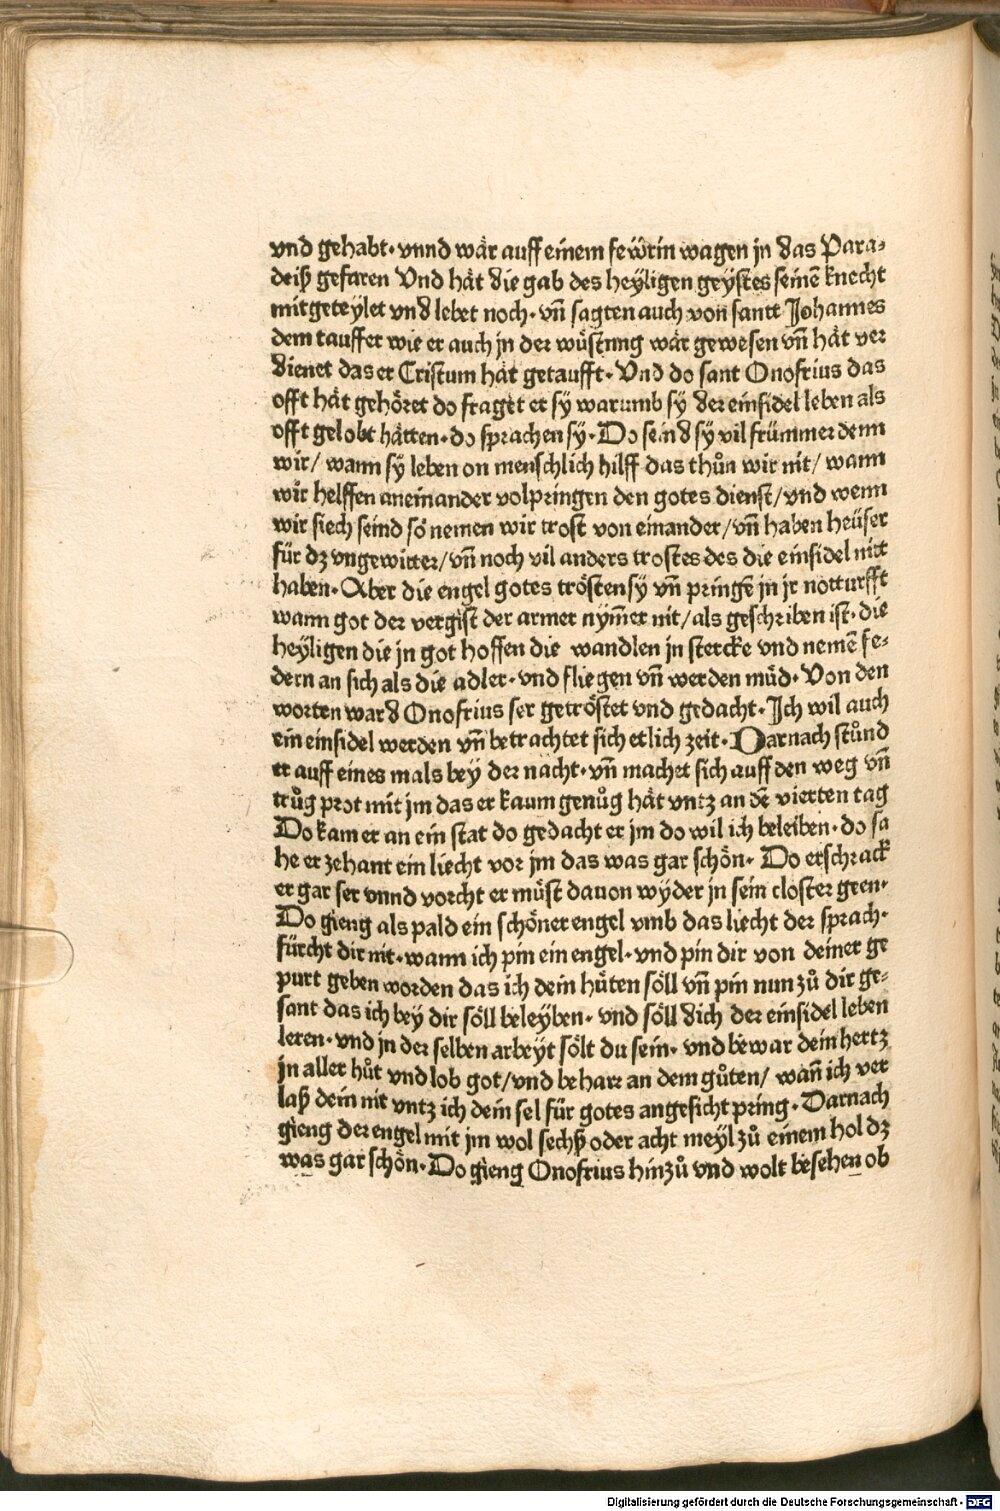 vnd gehabt· vnnd wår auff einem feẘrin wagen in das Para-
deiß gefaren Vnd håt die gab des heyligen geystes seinē knecht
mitgeteylet vnd lebet noch· vn̄ sagten auch von santt Johannes
dem tauffer wie er auch jn der wůstnng wår gewesen vn̄ håt ver
dienet das er Cristum håt getaufft· Vnd do sant Onofrius das
offt håt gehöret do fraget er sy warumb sy der einsidel leben als
offt gelobt håtten· do sprachen sy· Do seind sy vil frümmer denn
wir/ wann sy leben on menschlich hilff das thůn wir nit/ wann
wir helffen aneinander volpringen den gotes dienst/ vnd wenn
wir siech seind so nemen wir trost von einander/ vn̄ haben heüser
für dz vngewitter/ vn̄ noch vil anders trostes des die einsidel nitt
haben· Aber die engel gotes trösten sy vn̄ pringē jn jr notturfft
wann got der vergist der armer nym̄er nit/ als geschriben ist· die
heyligen die jn got hoffen die wandlen jn stercke vnd nemē fe-
dern an sich als die adler· vnd fliegen vn̄ werden müd· Von den
worten ward Onofrius ser getröstet vnd gedacht· Ich wil auch
ein einsidel werden vn̄ betrachtet sich etlich zeit· Darnach stůnd
er auff eines mals bey der nacht· vn̄ machet sich auff den weg vn̄
trůg prot mit jm das er kaum genůg håt vntz an dē vierten tag
Do kam er an ein stat do gedacht er jm do wil ich beleiben· do sa
he er zehant ein liecht vor jm das was gar schön· Do erschrack
er gar ser vnnd vorcht er müst dauon wyder jn sein closter geen·
Do gieng als pald ein schöner engel vmb das liecht der sprach·
fürcht dir nit· wann ich pin ein engel· vnd pin dir von deiner ge
purt geben worden das ich dein hüten söll vn̄ pin nun zů dir ge-
sant das ich bey dir söll beleyben· vnd söll dich der einsidel leben
leren· vnd jn der selben arbeyt sölt du sein· vnd bewar dein hertz
jn aller hůt vnd lob got/ vnd beharr an dem gůten/ wan̄ ich ver
laß dein nit vntz ich dein sel für gotes angesicht pring· Darnach
gieng der engel mit jm wol sechß oder acht meyl zů einem hol dz
was gar schön· Do gieng Onofrius hinzů vnd wolt besehen ob
Digitalisierung gefördert durch die Deutsche Forschungsgemeinschaft - DFG